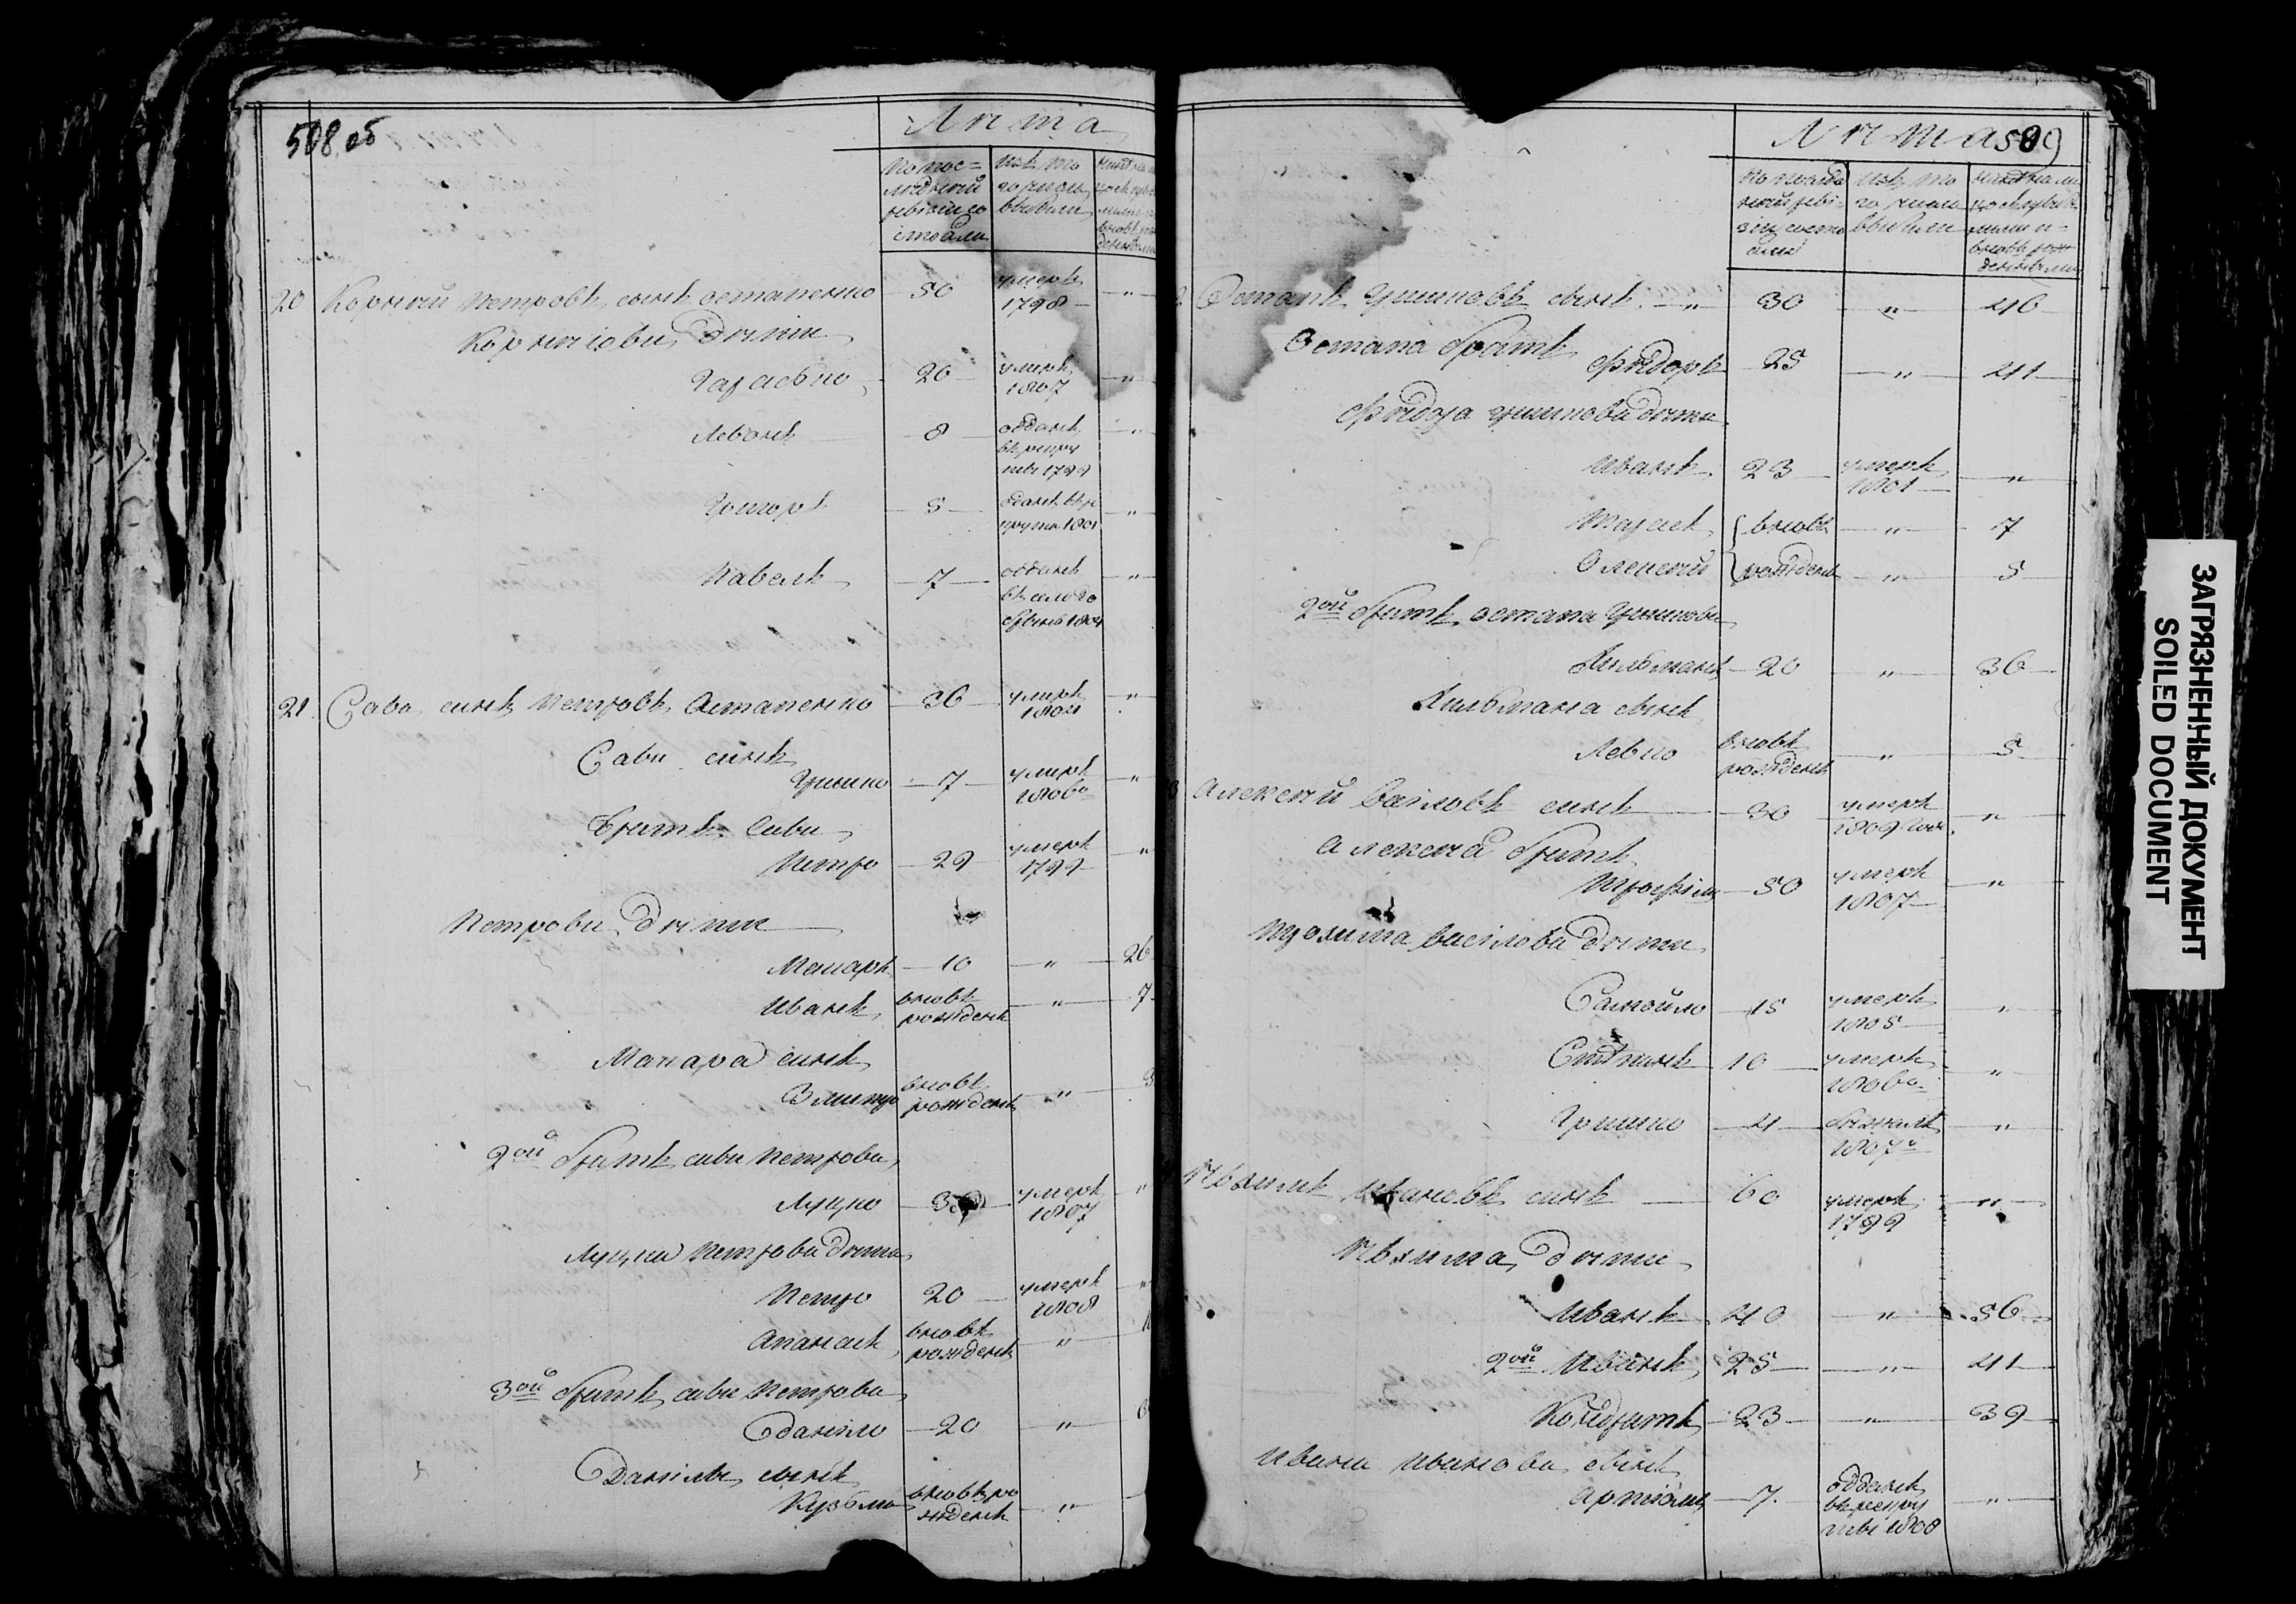 508 об
Лѣта
По пос=
лѣдней
ревизіи со
стояли
Изъ то
го числа
выбыли
20 Корнѣй Петровъ сынъ Остапенко 50 умеръ 1798 "
Корнѣіови дѣти
Гарасько 20 умеръ 1807 "
Леонъ 8 отданъ въ рекру ты 1799 "
Григорѣ 5 отданъ въ ре круты 1801 "
Павелъ 7 отданъ 1804 "
21 Сава сынъ Петровъ Остапенко 36 умеръ 1804 "
Сави синъ
Грицко 7 умеръ 1806го "
Братъ Сави
Петро 29 умеръ 1799 "
Петрови дѣти
Макаръ 10 " 26
Иванъ вновь рожденъ " 7
Макара синъ
Змитро вновь рожденъ " 3
2ой братъ Сави Петрова
Луцко умеръ 1807 "
Луцки Петрова дѣти
Петро 20 умеръ 1808 "
Апанасъ вновь рожденъ "
3ой братъ Сави Петрова
Данило 20 "
Данилы сынъ
Кузьма вновь ро жденъ "
Лѣта 509
По послѣд
ней реви=
зіи состо
яли
Изъ то
го числа
выбыли
Остапъ Грицковъ сынъ " 30 " 46
Остапа братъ
Фѣдоръ 25 " 41
Фѣдора Грицкова дѣти
Иванъ 23 умеръ 1801 "
Тарасъ вновь " 7
Олексѣй рожденъ " 5
2ой братъ Остапа Грицкова
20 " 36
сынъ
Левко вновь рожденъ " 5
Алексѣй Василовъ синъ 30 умеръ 1809 "
Алексѣя братъ
Трофимъ 50 умеръ 1807 "
Трохима Василова дѣти
Самойло 15 умеръ 1805 "
Стѣпанъ 10 умеръ 1806го "
Гришко 4 бѣжалъ 1807го "
Ивановъ синъ 60 умеръ 1799 "
дѣти
Иванъ 40 " 56
2ой Иванъ 25 " 41
Кондратъ 23 " 39
Ивана Иванова сынъ
Артіомъ 7 отданъ въ рекру ты 1808 "
ЗАГРЯЗНЕННЫЙ ДОКУМЕНТ
SOILED DOCUMENT